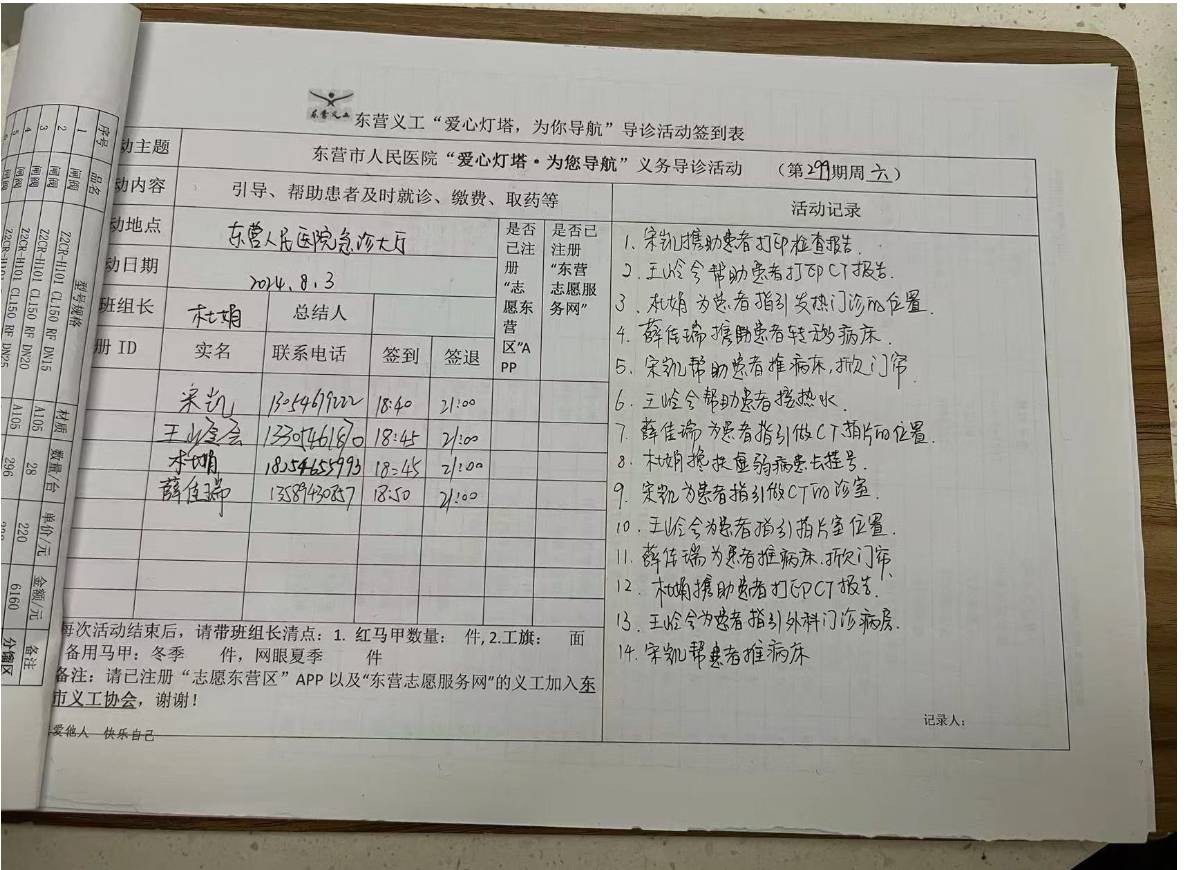 东营义工
东营义工“爱心灯塔，为你导航”导诊活动签到表
动主题
东营市人民医院“爱心灯塔·为您导航”义务导诊活动 （第299期周六）
动内容
引导、帮助患者及时就诊、缴费、取药等
活动记录
动地点
东营人民医院急诊大厅
是否已注册“志愿东营区”APP
是否已注册“东营志愿服务网”
动日期
2024.8.3
班组长
杜娟
总结人
册 ID
实名 联系电话 签到 签退
宋凯 13054619222 18:40 21:00
18:45 21:00
杜娟 18254655993 18:45 21:00
薛佳瑞 13589430857 18:50 21:00
1. 宋凯携助患者打印检查报告.
2. 帮助患者打印CT报告.
3. 杜娟为患者指引发热门诊的位置.
4. 薛佳瑞携助患者转移病床.
5. 宋凯帮助患者推病床,掀门帘.
6. 帮助患者接热水.
7. 薛佳瑞为患者指引做CT拍片的位置.
8. 杜娟搀扶虚弱病患去挂号.
9. 宋凯为患者指引做CT的诊室.
10. 为患者指引拍片室位置.
11. 薛佳瑞为患者推病床.掀门帘
12. 杜娟携助患者打印CT报告.
13. 为患者指引外科门诊病房.
14. 宋凯帮患者推病床
每次活动结束后，请带班组长清点：1. 红马甲数量： 件, 2.工旗： 面
备用马甲：冬季 件，网眼夏季 件
备注：请已注册“志愿东营区”APP 以及“东营志愿服务网”的义工加入东
市义工协会，谢谢！
记录人：
爱他人 快乐自己
序号 品名 型号规格 材质 数量/台 单价/元 金额/元 备注
1 闸阀 Z2CR-H101 CL150 RF DN15 A105 28 220 6160 分馏区
2 闸阀 Z2CR-H101 CL150 RF DN20 A105 296
3 闸阀 Z2CR-H101 CL150 RF DN25
4 闸阀